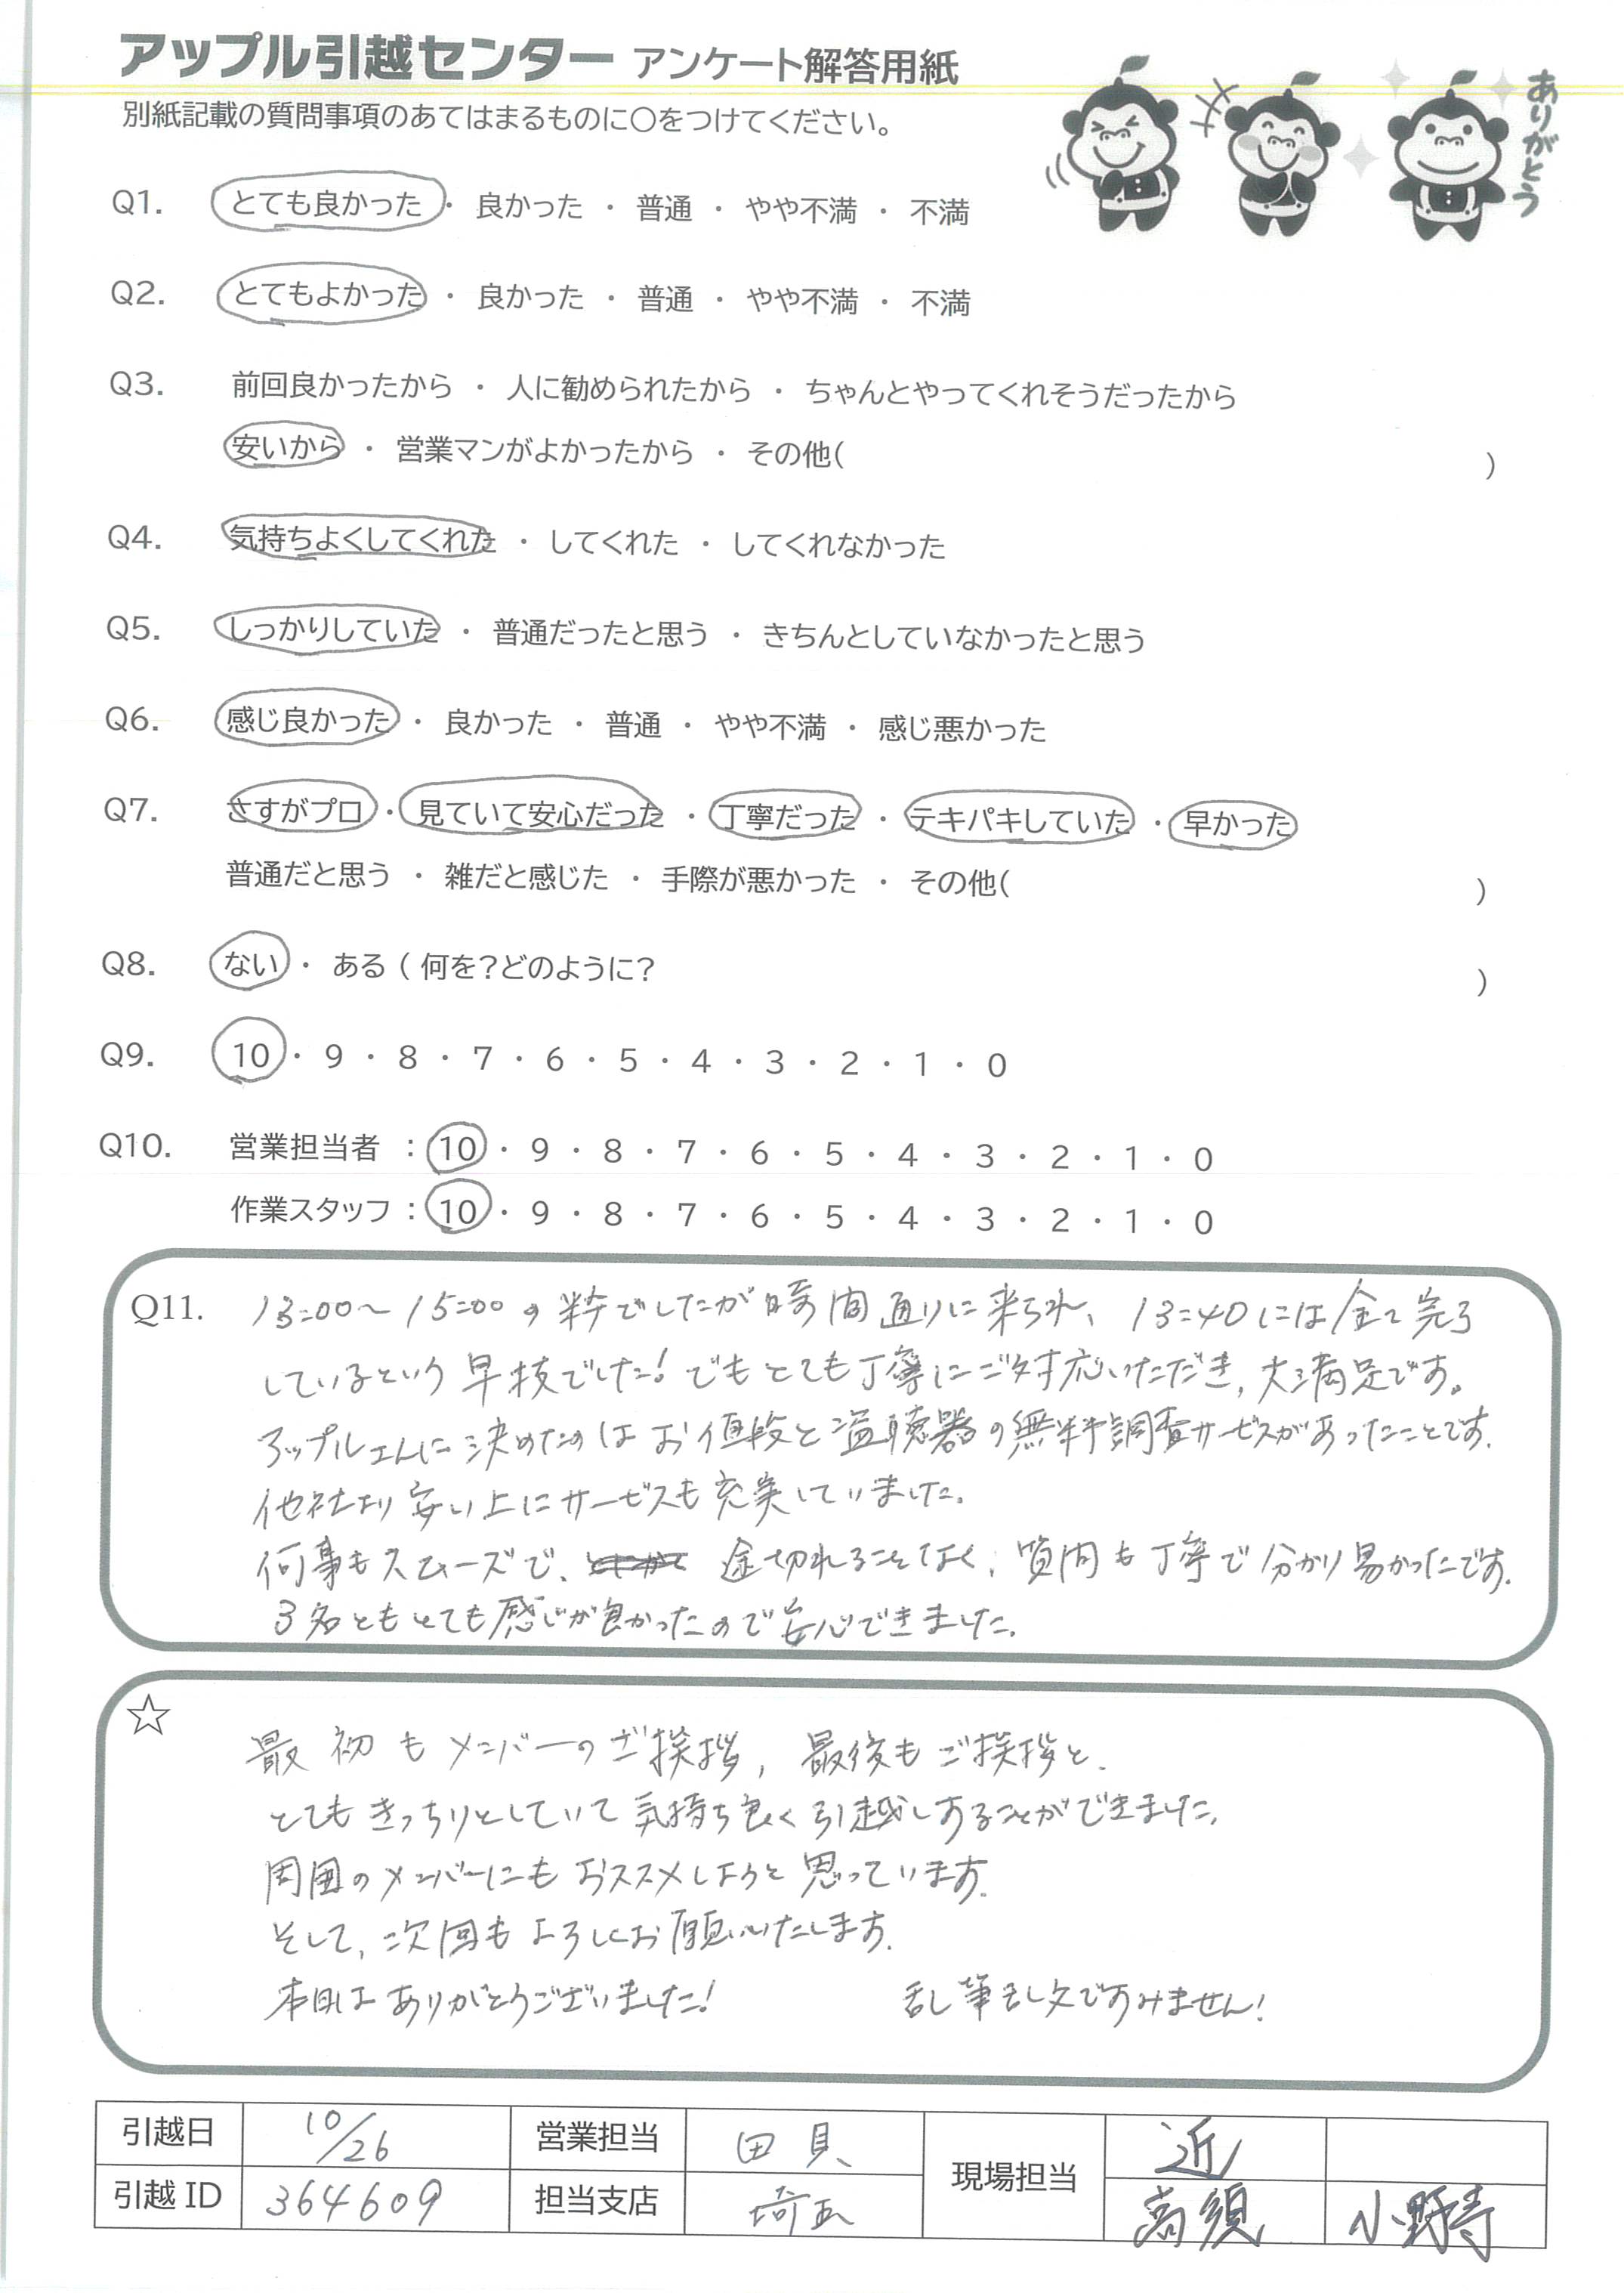 アップル引越センター アンケート解答用紙
別紙記載の質問事項のあてはまるものに○をつけてください。
ありがとう
Q1. とても良かった ・ 良かった ・ 普通 ・ やや不満 ・ 不満
Q2. とてもよかった ・ 良かった ・ 普通 ・ やや不満 ・ 不満
Q3. 前回良かったから ・ 人に勧められたから ・ ちゃんとやってくれそうだったから
安いから ・ 営業マンがよかったから ・ その他( )
Q4. 気持ちよくしてくれた ・ してくれた ・ してくれなかった
Q5. しっかりしていた ・ 普通だったと思う ・ きちんとしていなかったと思う
Q6. 感じ良かった ・ 良かった ・ 普通 ・ やや不満 ・ 感じ悪かった
Q7. さすがプロ ・ 見ていて安心だった ・ 丁寧だった ・ テキパキしていた ・ 早かった
普通だと思う ・ 雑だと感じた ・ 手際が悪かった ・ その他( )
Q8. ない ・ ある ( 何を?どのように? )
Q9. 10 ・ 9 ・ 8 ・ 7 ・ 6 ・ 5 ・ 4 ・ 3 ・ 2 ・ 1 ・ 0
Q10. 営業担当者 : 10 ・ 9 ・ 8 ・ 7 ・ 6 ・ 5 ・ 4 ・ 3 ・ 2 ・ 1 ・ 0
作業スタッフ : 10 ・ 9 ・ 8 ・ 7 ・ 6 ・ 5 ・ 4 ・ 3 ・ 2 ・ 1 ・ 0
Q11. 13:00〜15:00の枠でしたが時間通りに来られ、13:40には全て完了
しているという早技でした!でもとても丁寧にご対応いただき、大満足です。
アップルさんに決めたのはお値段と盗聴器の無料調査サービスがあったことです。
他社より安い上にサービスも充実していました。
何事もスムーズで、途切れることなく、質内も丁寧で分かり易かったです。
3名ともとても感じが良かったので安心できました。
☆
最初もメンバーのご挨拶、最後もご挨拶と、
とてもきっちりとしていて気持ち良く引越しすることができました。
周囲のメンバーにもおススメしようと思っています。
そして、次回もよろしくお願いいたします。
本日はありがとうございました! 乱筆乱文ですみません!
引越日 10/26 営業担当 田貝 現場担当 近
引越ID 364609 担当支店 埼玉 高須 小野寺